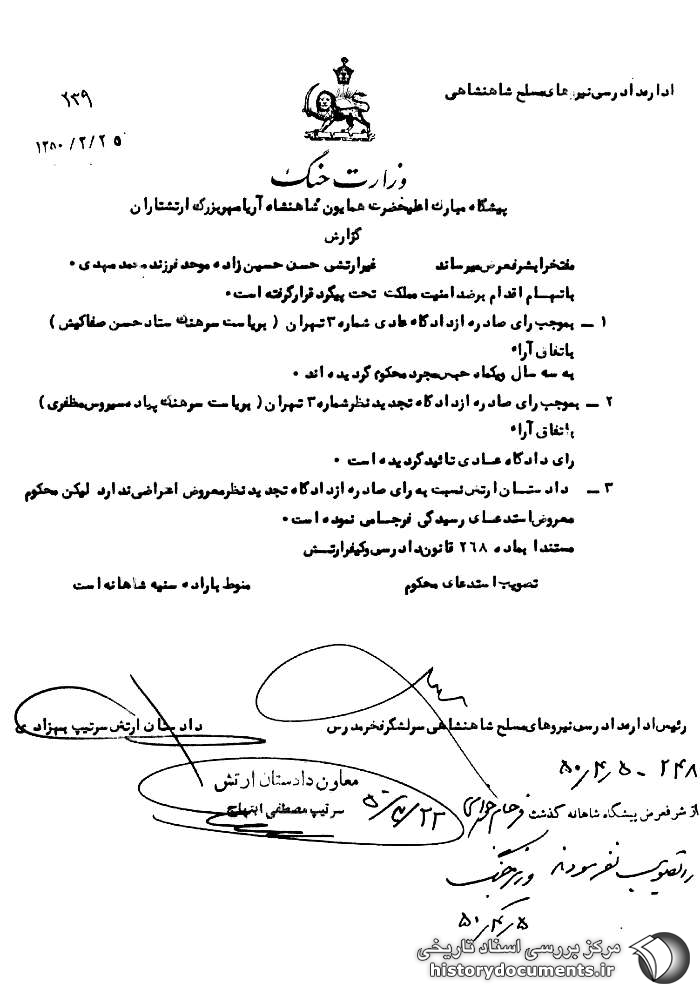 اداره دادرسی نیروهای مسلح شاهنشاهی
۲۳۹
۱۳۵۰/۲/۲۵
وزارت جنگ
پیشگاه مبارک اعلیحضرت همایون شاهنشاه آریامهر بزرگ ارتشتاران
گزارش
مفتخرا بشرفعرض میرساند غیرارتشی حسن حسین زاده موحد فرزند محمد مهدی ۰
باتهام اقدام برضد امنیت مملکت تحت پیگرد قرار گرفته است ۰
۱ ــ بموجب رای صادره از دادگاه عادی شماره ۳ تهران ( بریاست سرهنگ ستاد حسن صفاکیش )
باتفاق آراء
به سه سال و یکماه حبس مجرد محکوم گردیده اند ۰
۲ ــ بموجب رای صادره از دادگاه تجدید نظر شماره ۳ تهران ( بریاست سرهنگ پیاده سیروس مظفری )
باتفاق آراء
رای دادگاه عادی تائید گردیده است ۰
۳ ــ دادستان ارتش نسبت به رای صادره از دادگاه تجدید نظر معروض اعتراضی ندارد لیکن محکوم
معروض استدعای رسیدگی فرجامی نموده است ۰
مستندا بماده ۲۶۸ قانون دادرسی و کیفر ارتش
تصویب استدعای محکوم منوط باراده سنیه شاهانه است
رئیس اداره دادرسی نیروهای مسلح شاهنشاهی سرلشگر فخرمدرس
دادستان ارتش سرتیپ بهزادی
۲۴۸ - ۵۰/۴/۵
معاون دادستان ارتش
سرتیپ مصطفی ابتهاج
از شرفعرض پیشگاه شاهانه گذشت فرجام خواهی
را تصویب نفرمودند وزیر جنگ
۵۰/۴/۵
مرکز بررسی اسناد تاریخی
historydocuments.ir